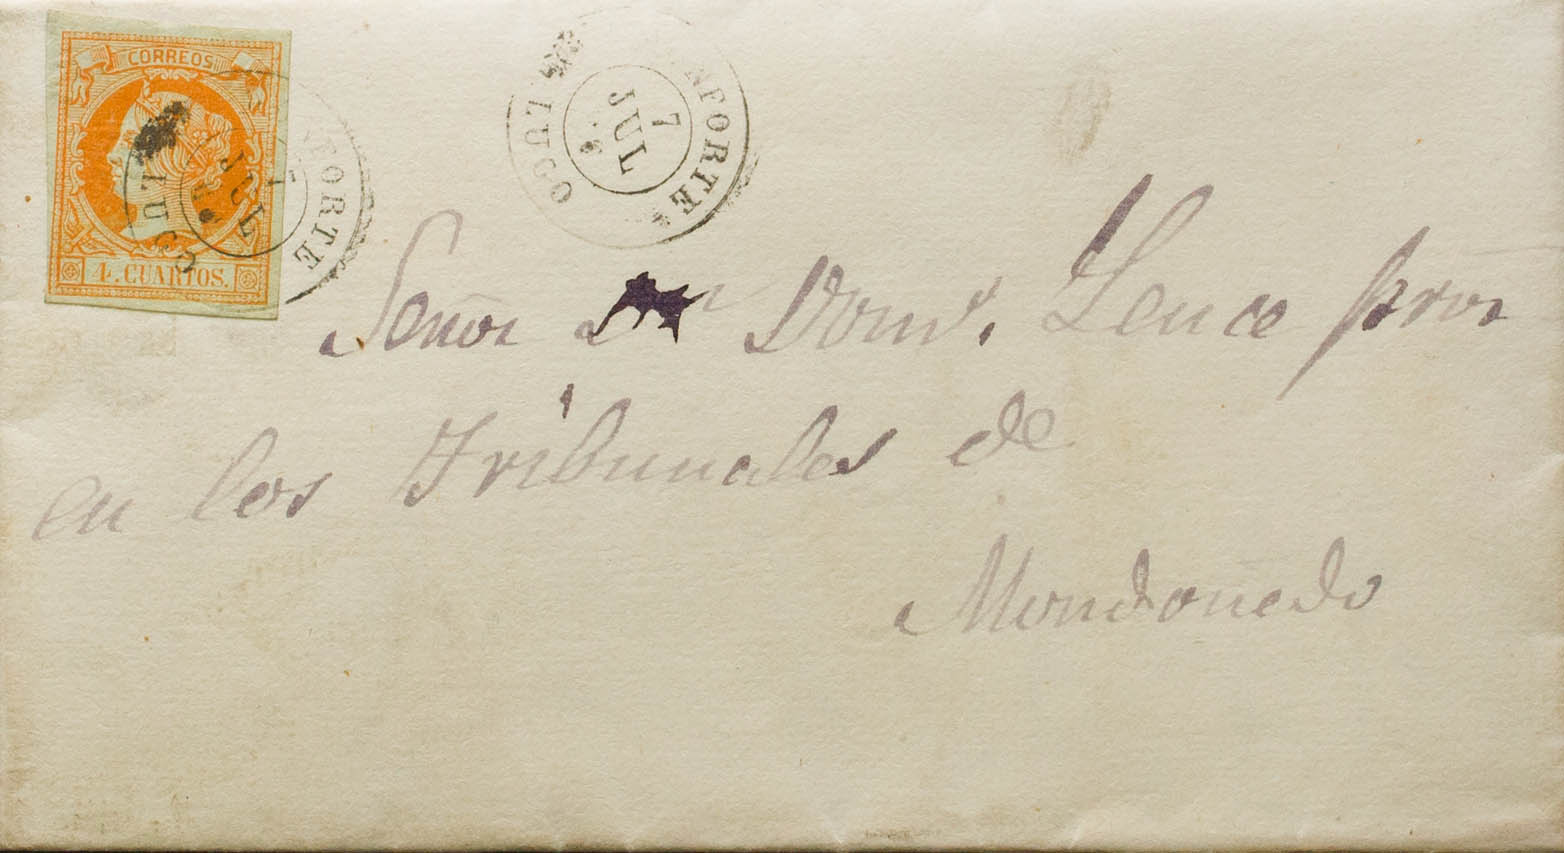 CORREOS
4. CUARTOS.
NFORTE
LUGO
7
JUL
FORTE
LUGO
7
JUL
Señor Dn Domo. Lence pror
en los Tribunales de
Mondoñedo